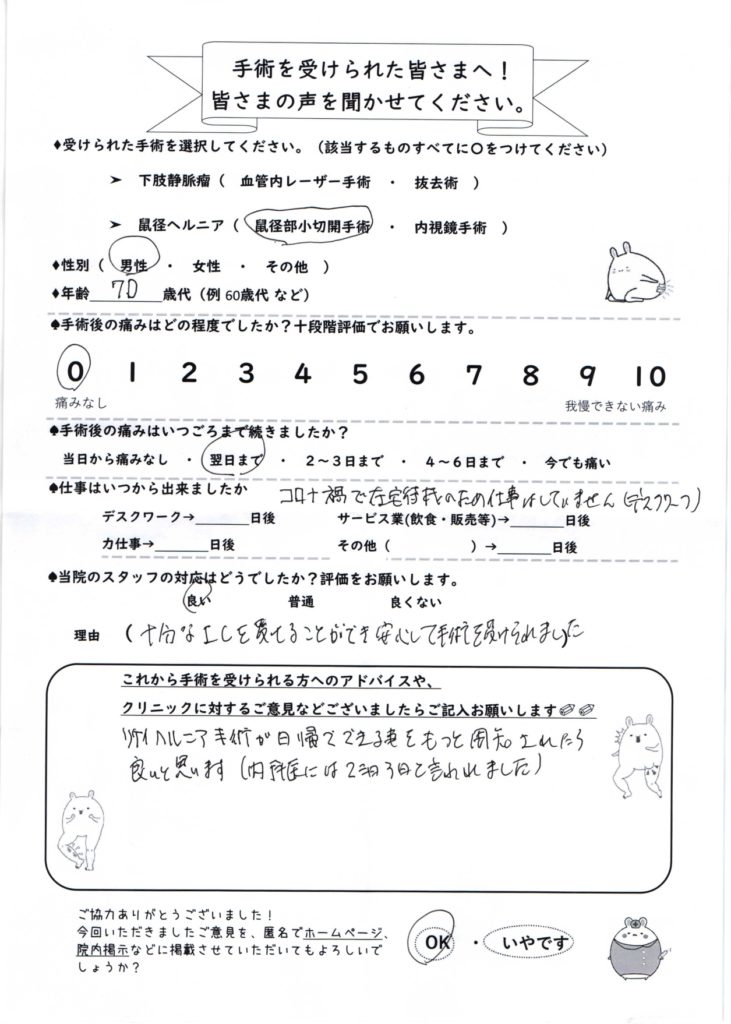 手術を受けられた皆さまへ！
皆さまの声を聞かせてください。
♦受けられた手術を選択してください。（該当するものすべてに〇をつけてください）
➤ 下肢静脈瘤（ 血管内レーザー手術 ・ 抜去術 ）
➤ 鼠径ヘルニア（ 鼠径部小切開手術 ・ 内視鏡手術 ）
♦性別（ 男性 ・ 女性 ・ その他 ）
♦年齢 70 歳代（例 60歳代 など）
♠手術後の痛みはどの程度でしたか？十段階評価でお願いします。
0 1 2 3 4 5 6 7 8 9 10
痛みなし 我慢できない痛み
♠手術後の痛みはいつごろまで続きましたか？
当日から痛みなし ・ 翌日まで ・ 2～3日まで ・ 4～6日まで ・ 今でも痛い
♠仕事はいつから出来ましたか
コロナ禍で在宅待機のため仕事はしていません（デスクワーク）
デスクワーク→＿＿＿日後 サービス業(飲食・販売等)→＿＿＿日後
力仕事→＿＿＿日後 その他（ ）→＿＿＿日後
♠当院のスタッフの対応はどうでしたか？評価をお願いします。
良い 普通 良くない
理由 （十分な を ことができ安心して手術を受けられました
これから手術を受けられる方へのアドバイスや、
クリニックに対するご意見などございましたらご記入お願いします
ソケイヘルニア手術が日帰りでできる事をもっと周知されたら
良いと思います（内科医には2泊3日と言われました）
ご協力ありがとうございました！
今回いただきましたご意見を、匿名でホームページ、
院内掲示などに掲載させていただいてもよろしいで
しょうか？
OK ・ いやです